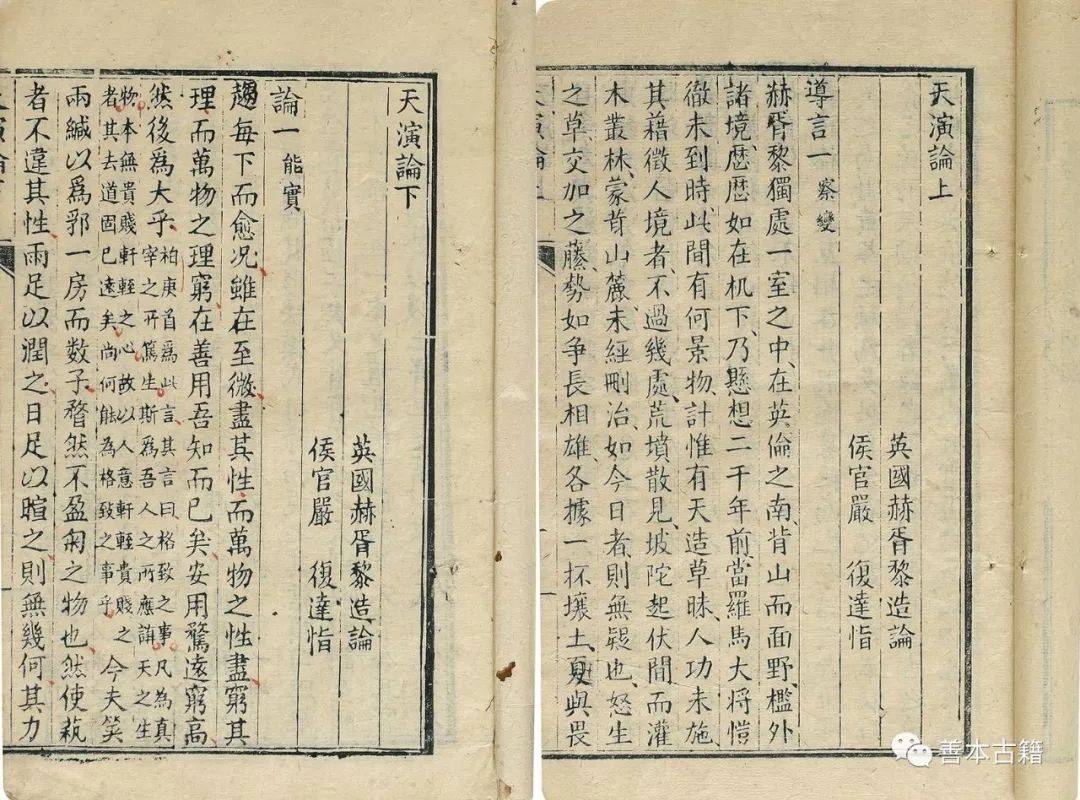 天演論上
英國赫胥黎造論
侯官嚴 復達恉
導言一 察變
赫胥黎獨處一室之中、在英倫之南、背山而面野、檻外
諸境歷歷如在机下、乃懸想二千年前、當羅馬大將愷
徹未到時、此間有何景物、計惟有天造草昧、人功未施、
其藉徵人境者、不過幾處荒墳、散見坡陀起伏間、而灌
木叢林、蒙茸山麓、未經刪治如今日者、則無疑也、怒生
之草、交加之藤、勢如爭長相雄、各據一抔壤土、夏與畏
演論上
天演論下
英國赫胥黎造論
侯官嚴 復達恉
論一 能實
趨每下而愈况、雖在至微、盡其性而萬物之性盡、窮其
理而萬物之理窮、在善用吾知而已矣、安用騖遠窮高
然後爲大乎、柏庚首爲此言、其言曰、格致之事、凡為真
宰之所篤生、斯爲吾人之所應講、天之生
物、本無貴賤軒輊之心、故以人意軒輊貴賤之
者、其去道固已遠矣、尚何能為格致之事乎、今夫筴
兩緘以爲郛、一房而数子、瞀然不盈匊之物也、然使蓺
者不違其性、雨足以潤之、日足以暄之、則無幾何、其力
演論下
善本古籍